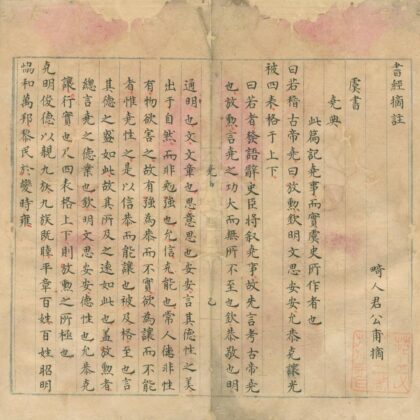 書經摘註
畸人君公甫摘
虞書
堯典
此篇記堯事而實虞史所作者也
曰若稽古帝堯曰放勲欽明文思安安允恭克讓光
被四表格于上下
曰若者發語辭史臣將叙堯事故先言考古帝堯
也放勲言堯之功大而無所不至也欽恭敬也明
通明也文文章也思意思也安安言其德性之美
出于自然而非勉強也允信克能也常人德非性
有物欲害之故有強為恭而不實欲為讓而不能
者惟堯性之是以信恭而能讓也被及格至也言
其德之盛如此故其所及之遠如此也盖放勲者
總言堯之德業也欽明文思安安德性也允恭克
讓行實也及四表格上下則放勲之所極也
克明俊德以親九族九族既睦平章百姓百姓昭明
恊和萬邦黎民於變時雍